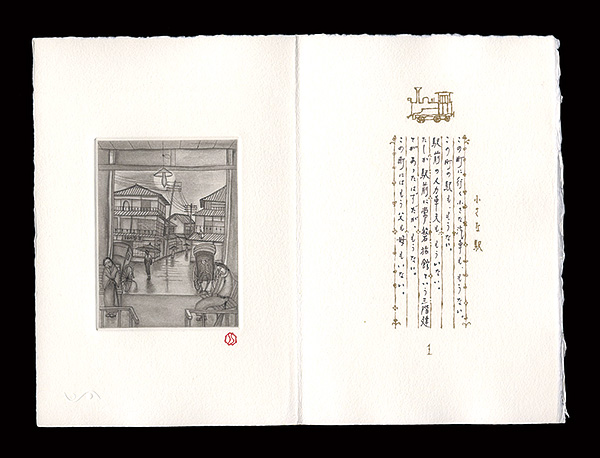 小さな駅
この町に行く小さな汽車も、もうない。
この町の駅も、もうない。
駅前の人力車夫も、もういない。
たしか駅前に常盤旅館という三階建
てがあったはずだが、もうない。
この町にはもう父も母もいない。
1